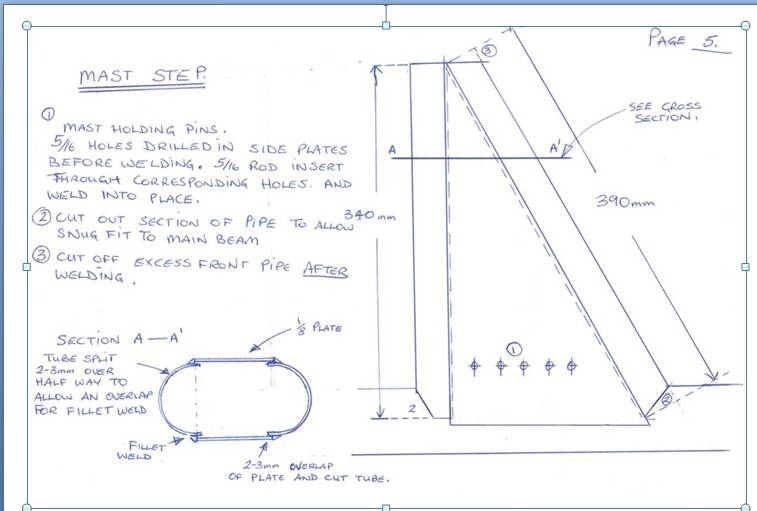 PAGE 5.
MAST STEP.
①
MAST HOLDING PINS.
5/16 HOLES DRILLED IN SIDE PLATES
BEFORE WELDING. 5/16 ROD INSERT
THROUGH CORRESPONDING HOLES. AND
WELD INTO PLACE.
② CUT OUT SECTION OF PIPE TO ALLOW
SNUG FIT TO MAIN BEAM
③ CUT OFF EXCESS FRONT PIPE AFTER
WELDING.
SECTION A—A'
TUBE SPLIT
2-3mm OVER
HALF WAY TO
ALLOW AN OVERLAP
FOR FILLET WELD
1/8 PLATE
FILLET
WELD
2-3mm OVERLAP
OF PLATE AND CUT TUBE.
③
SEE CROSS
SECTION.
A
A'
340mm
390mm
①
2
②